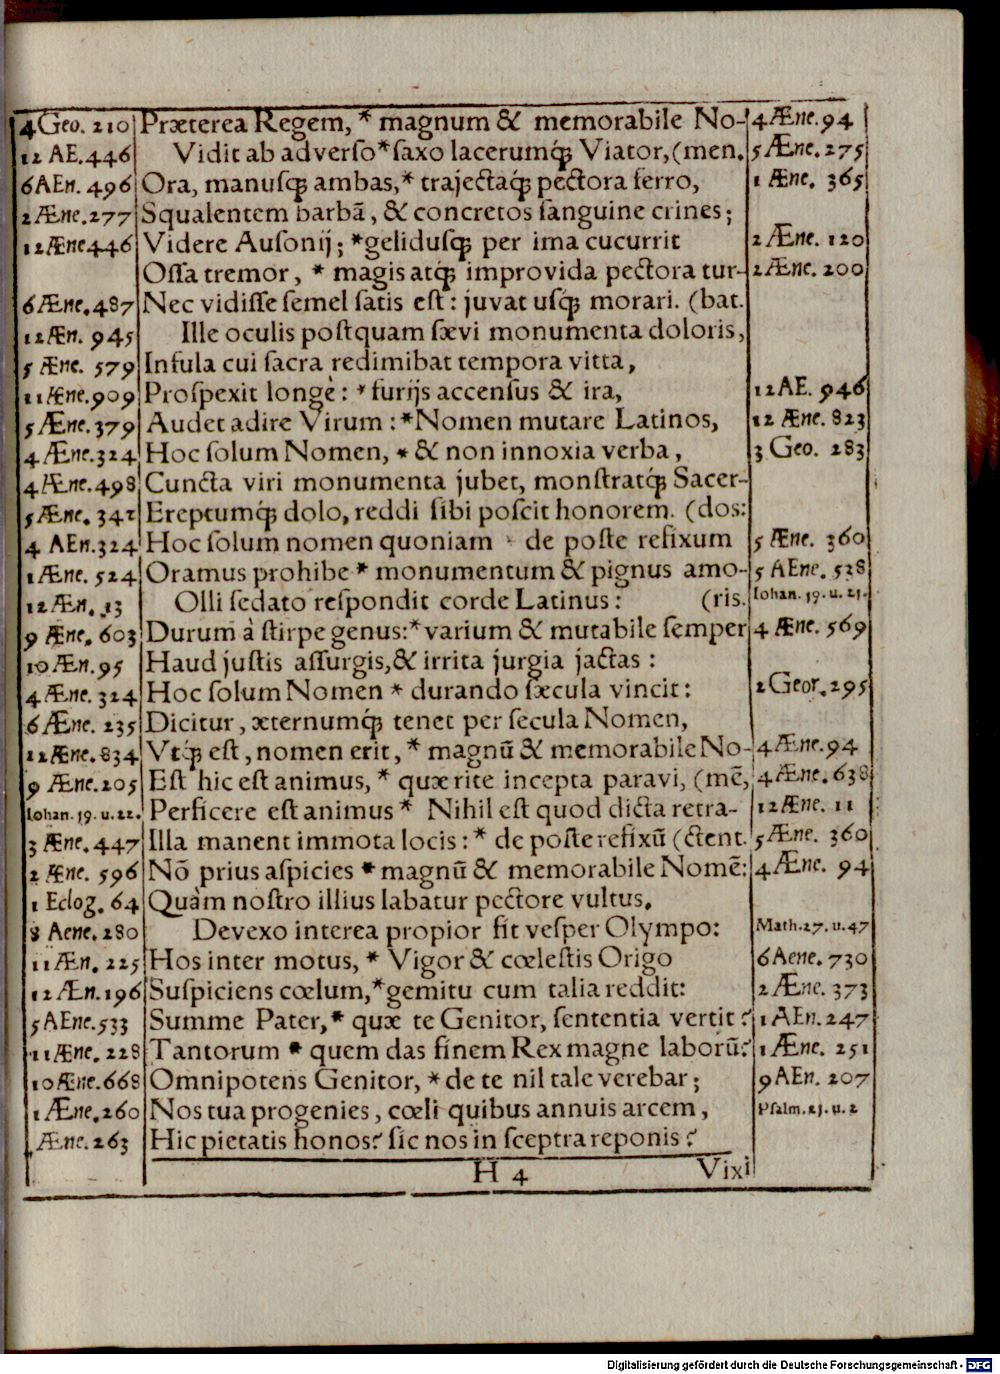 4 Geo. 210 Præterea Regem, * magnum & memorabile No- 4 Æne. 94
12 AE. 446 Vidit ab adverſo * ſaxo lacerumq́; Viator, (men. 5 Æne. 275
6 AEn. 496 Ora, manuſq́; ambas, * trajectaq́; pectora ferro, 1 Æne. 365
2 Æne. 277 Squalentem barbā, & concretos ſanguine crines;
12 Æne 446 Videre Auſonij; * geliduſq́; per ima cucurrit 2 Æne. 120
Oſſa tremor, * magis atq́; improvida pectora tur- 2 Æne. 200
6 Æne. 487 Nec vidiſſe ſemel ſatis eſt: juvat uſq́; morari. (bat.
12 Æn. 945 Ille oculis poſtquam ſævi monumenta doloris,
5 Æne. 579 Inſula cui ſacra redimibat tempora vitta,
11 Æne. 909 Proſpexit longè: * furijs accenſus & ira, 12 AE. 946
5 Æne. 379 Audet adire Virum: * Nomen mutare Latinos, 12 Æne. 823
4 Æne. 324 Hoc ſolum Nomen, * & non innoxia verba, 3 Geo. 283
4 Æne. 498 Cuncta viri monumenta jubet, monſtratq́; Sacer-
5 Æne. 342 Ereptumq́; dolo, reddi ſibi poſcit honorem. (dos:
4 AEn. 324 Hoc ſolum nomen quoniam * de poſte refixum 5 Æne. 360
1 Æne. 524 Oramus prohibe * monumentum & pignus amo- 5 AEne. 528
12 Æn. 13 Olli ſedato reſpondit corde Latinus: (ris. Iohan. 19. u. 21.
9 Æne. 603 Durum à ſtirpe genus: * varium & mutabile ſemper 4 Æne. 569
10 Æn. 95 Haud juſtis aſſurgis, & irrita jurgia jactas:
4 Æne. 324 Hoc ſolum Nomen * durando ſæcula vincit: 2 Geor. 295
6 Æne. 235 Dicitur, æternumq́; tenet per ſecula Nomen,
12 Æne. 834 Vtq́; eſt, nomen erit, * magnū & memorabile No- 4 Æne. 94
9 Æne. 205 Eſt hic eſt animus, * quæ rite incepta paravi, (mē, 4 Æne. 638
Iohan. 19. u. 22. Perficere eſt animus * Nihil eſt quod dicta retra- 12 Æne. 11
3 Æne. 447 Illa manent immota locis: * de poſte refixū (ctent. 5 Æne. 360
2 Æne. 596 Nō prius aſpicies * magnū & memorabile Nomē: 4 Æne. 94
1 Eclog. 64 Quàm noſtro illius labatur pectore vultus.
8 Aene. 280 Devexo interea propior fit veſper Olympo: Math. 27. u. 47
11 Æn. 225 Hos inter motus, * Vigor & cœleſtis Origo 6 Aene. 730
12 Æn. 196 Suſpiciens cœlum, * gemitu cum talia reddit: 2 Æne. 373
5 AEne. 533 Summe Pater, * quæ te Genitor, ſententia vertit? 1 AEn. 247
11 Æne. 228 Tantorum * quem das finem Rex magne laborū? 1 Æne. 251
10 Æne. 668 Omnipotens Genitor, * de te nil tale verebar; 9 AEn. 207
1 Æne. 260 Nos tua progenies, cœli quibus annuis arcem, Pſalm. 21. u. 2
Æne. 263 Hic pietatis honos? ſic nos in ſceptra reponis?
H 4 Vixi
Digitalisierung gefördert durch die Deutsche Forschungsgemeinschaft - DFG